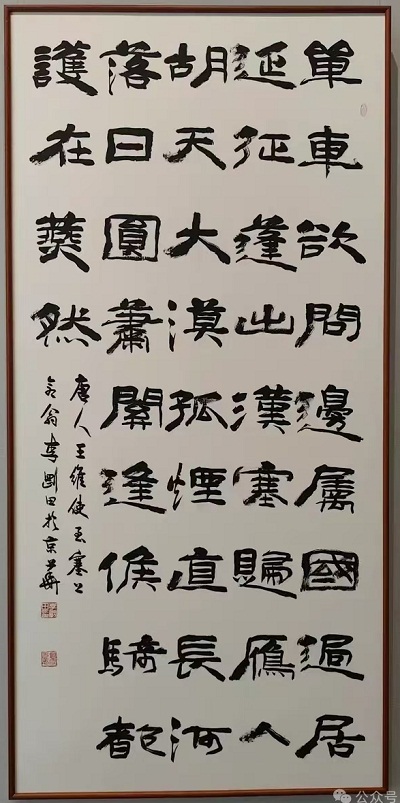 單車欲問邊屬國過居
延征蓬出漢塞歸鴈入
胡天大漠孤煙直長河
落日圓蕭關逢候騎都
護在燕然
唐人王維使至塞上
翁李剛田於京華
公众号